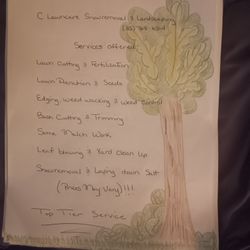 C Lawncare Snowremoval & Landscaping
Services offered
Lawn Cutting & Fertilization
Lawn Aeration & Seeds
Edging, weed wacking & weed Control
Bush Cutting & Trimming
Some Mulch Work
Leaf blowing & Yard Clean Up
Snowremoval & Laying down Salt
(Prices May Vary)!!!
Top Tier Service